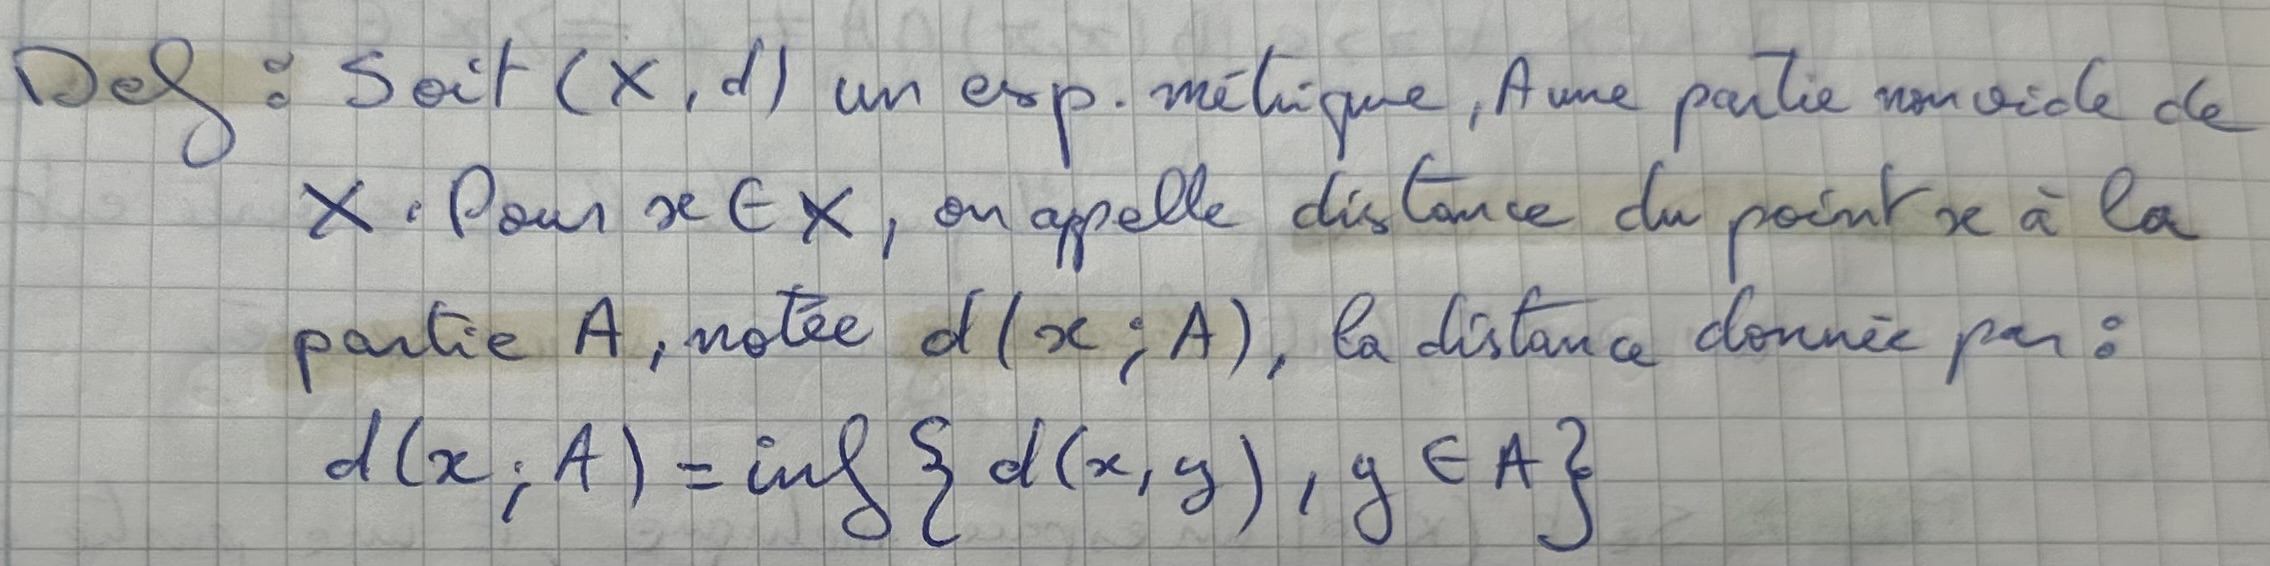 Def : Soit (X, d) un esp. métrique, A une partie non vide de
X. Pour x ∈ X, on appelle distance du point x à la
partie A, notée d(x ; A), la distance donnée par :
d(x ; A) = inf { d(x, y), y ∈ A }